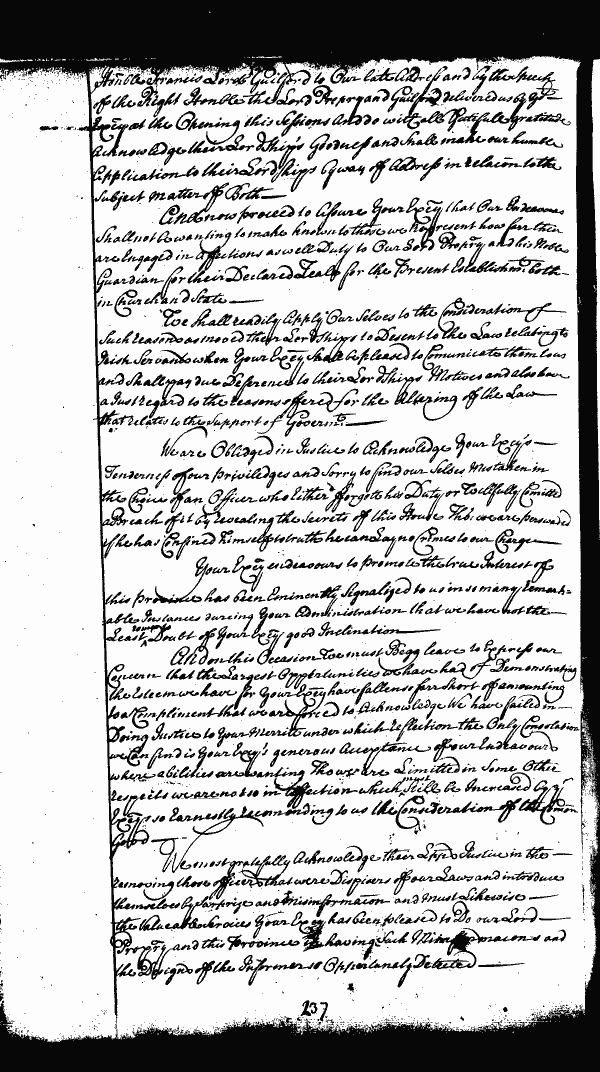 Honble Francis Lord Guilford to Our late Address and by the Speech
of the Right Honble the Lord Propry and Guilford delivered us by Yor
Excy at the Opening this Sessions And do with all gratitude
Acknowledge their Lordships Goodness and Shall make our humble
Application to their Lordships by way of Address in relacon to the
Subject matter of Both
And now proceed to Assure Your Excy that Our Endeavours
Shall not be wanting to make known to those we Represent how farr they
are Engaged in Affections as well Duty to Our Lord Propry and his Noble
Guardian for their Declared Zeale for the Present Establishmt. both
in Church and State
We Shall readily Apply Our Selves to the Consideration of
Such reasons as moved their Lordships to Desent to the Law relating to
Irish Servants when Your Excy Shall be pleased to Comunicate them to us
and Shall pay due Deference to their Lordships Motives and also have
a Just regard to the reasons offered for the Altering of the Law
that relates to the Support of Governmt.
We are Obliged in Justice to Acknowledge Your Excys
Tenderness of our priviledges and Sorry to find our Selves Mistaken in
the Choice of an Officer who Either forgote his Duty or Willfully Comitted
a Breach of it by revealing the Secrets of this House Tho: we are perswaded
if he has Confined himself to truth he can Lay no Crimes to our Charge
Your Excy endeavours to promote the true Interest of
this Province has been Eminently Signalized to us in so many remark
able Instances dureing Your Administration that we have not the
Least Doubt of Your Excy good Inclination
And on this Occasion We must Begg leave to Express our
Concern that the Largest Oppertunities we have had of Demonstrating
the Esteem we have for Your Excy have fallen so farr Short of amounting
to a Compliment that we are forced to Acknowledge We have failed in
Doing Justice to Your Merritt under which reflection the Only Consolation
we Can find is Your Excy's generous Acceptance of our Endeavours
where abilities are wanting Tho we are Limitted in Some Other
respects we are not so in Affection which must Still be Increased by Yr
Excys so Earnestly recomending to us the Consideration of the Comon
Good
We most gratefully Acknowledge their Lpps Justice in the
removing those officers that were Dispisers of our Laws and introduce
themselves by Surprize and misinformacon and must Likewise
the Valueable Services Your Excy has been pleased to Do our Lord
Propry and this Province in having Such Misinformacons and
the Designs of the Informer so Oppertunely Detected
237